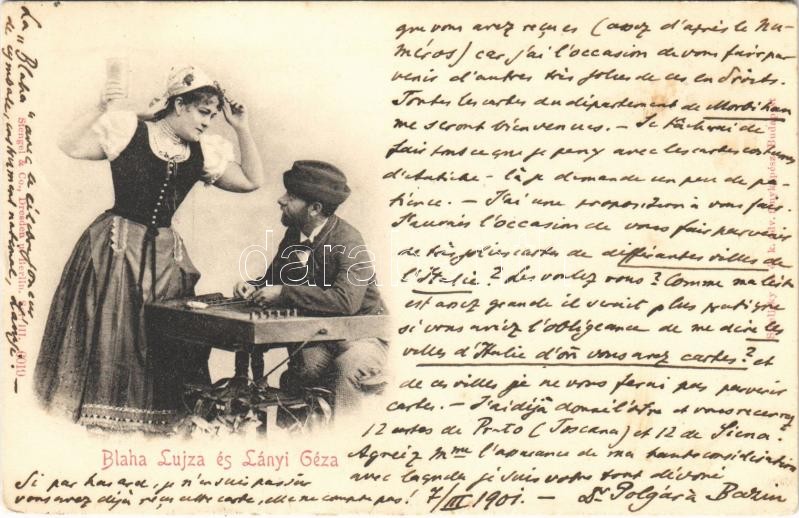 que vous avez reçues (avez d'après le Nu-
méros) car j'ai l'occasion de vous faire par
venir d'autres très jolies de ces endroits.
Toutes les cartes du département de Morbihan
me seront bienvenues. — Je tâcherai de
faire tout ce que je peux avec les cartes costumes
d'Autriche - là je demande un peu de pa-
tience. — J'ai une proposition à vous faire.
J'aurais l'occasion de vous faire parvenir
de très jolies cartes de différentes villes de
l'Italie? Les voulez vous? Comme ma liste
est assez grande il serait plus pratique
si vous aviez l'obligeance de me dire les
villes d'Italie d'où vous avez cartes? et
de ces villes je ne vous ferai pas parvenir
cartes. — J'ai déjà donné l'ordre et vous recevrez
12 cartes de Prato (Toscana) et 12 de Siena.
Agréez Mme l'assurance de ma haute considération
avec laquelle je suis votre tout dévoué
7/III 1901. — Dr Polgár à Bazin
La "Blaha" avec
de cymbale, instrument national, Lányi! —
Stengel & Co., Dresden u. Berlin.
Blaha Lujza és Lányi Géza
Si par hasard, je n'en suis pas sûr
vous avez déjà reçu cette carte, elle ne compte pas!
darabanth